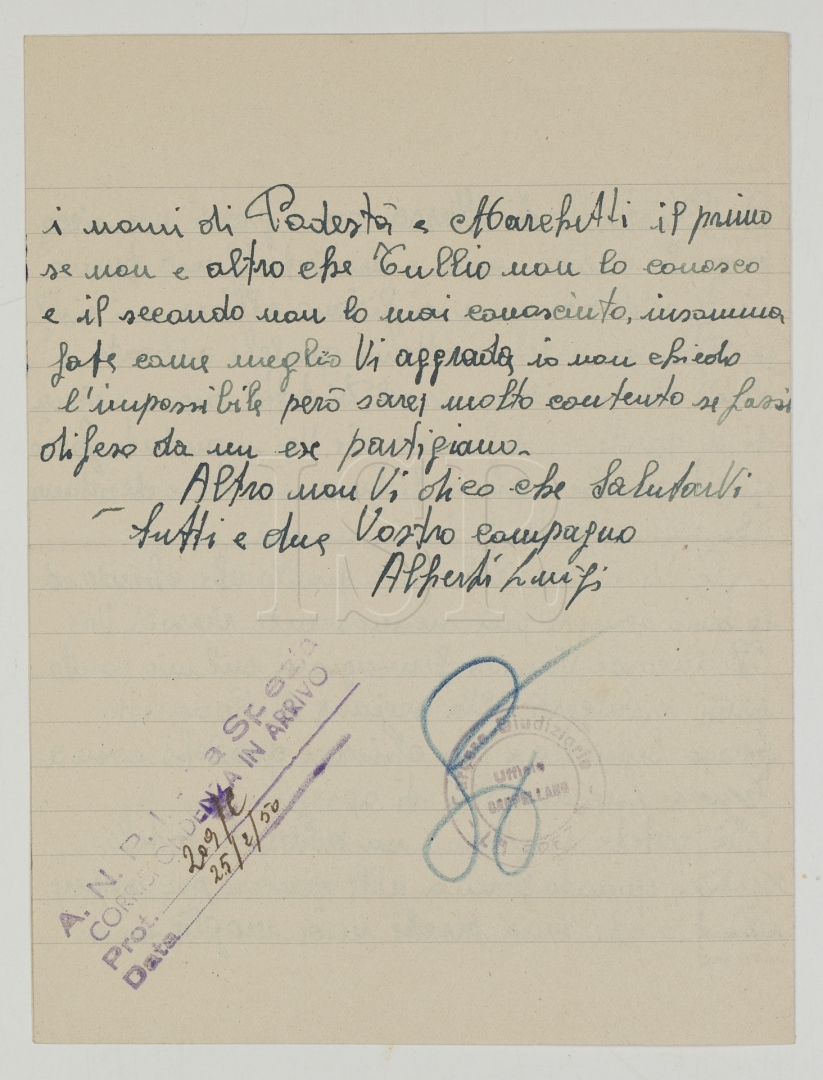 i nomi di Podestà e Marchetti il primo
se non e altro che Tullio non lo conosco
e il secondo non lo mai conosciuto, insomma
fate come meglio Vi aggrada io non chiedo
l'impossibile però sarei molto contento se fossi
difeso da un ex partigiano.
Altro non Vi dico che SalutarVi
tutti e due Vostro compagno
Alberti Luigi
ISR
A. N. P. I. La Spezia
CORRISPONDENZA IN ARRIVO
Prot. 209/C
Data 25/2/50
Giudiziarie
Ufficio